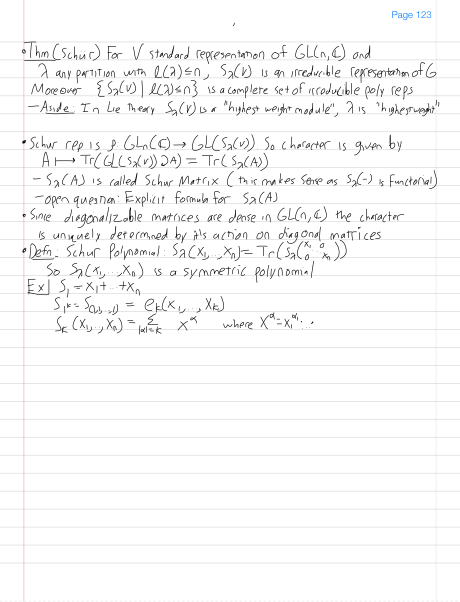 Page 123
• Thm (Schur) For V standard representation of GL(n, ℂ) and
λ any partition with ℓ(λ) ≤ n, S_λ(V) is an irreducible representation of G
Moreover {S_λ(V) | ℓ(λ) ≤ n} is a complete set of irreducible poly reps
- Aside: In Lie theory S_λ(V) is a "highest weight module", λ is "highest weight"
• Schur rep is ρ: GL_n(ℂ) → GL(S_λ(V)) So character is given by
A ↦ Tr(GL(S_λ(V)) ∋ A) = Tr(S_λ(A))
- S_λ(A) is called Schur Matrix (this makes sense as S_λ(-) is Functorial)
- open question: Explicit formula for S_λ(A)
• Since diagonalizable matrices are dense in GL(n, ℂ) the character
is uniquely determined by it's action on diagonal matrices
• Defn: Schur Polynomial: S_λ(x_1, ..., x_n) = Tr(S_λ(x_1 0 0 x_n))
So S_λ(x_1, ..., x_n) is a symmetric polynomial
Ex] S_1 = x_1 + ... + x_n
S_1^k = S_(1,...,1) = e_k(x_1, ..., x_k)
S_k(x_1, ..., x_n) = Σ_|α|=k x^α where x^α = x_1^α_1 ...